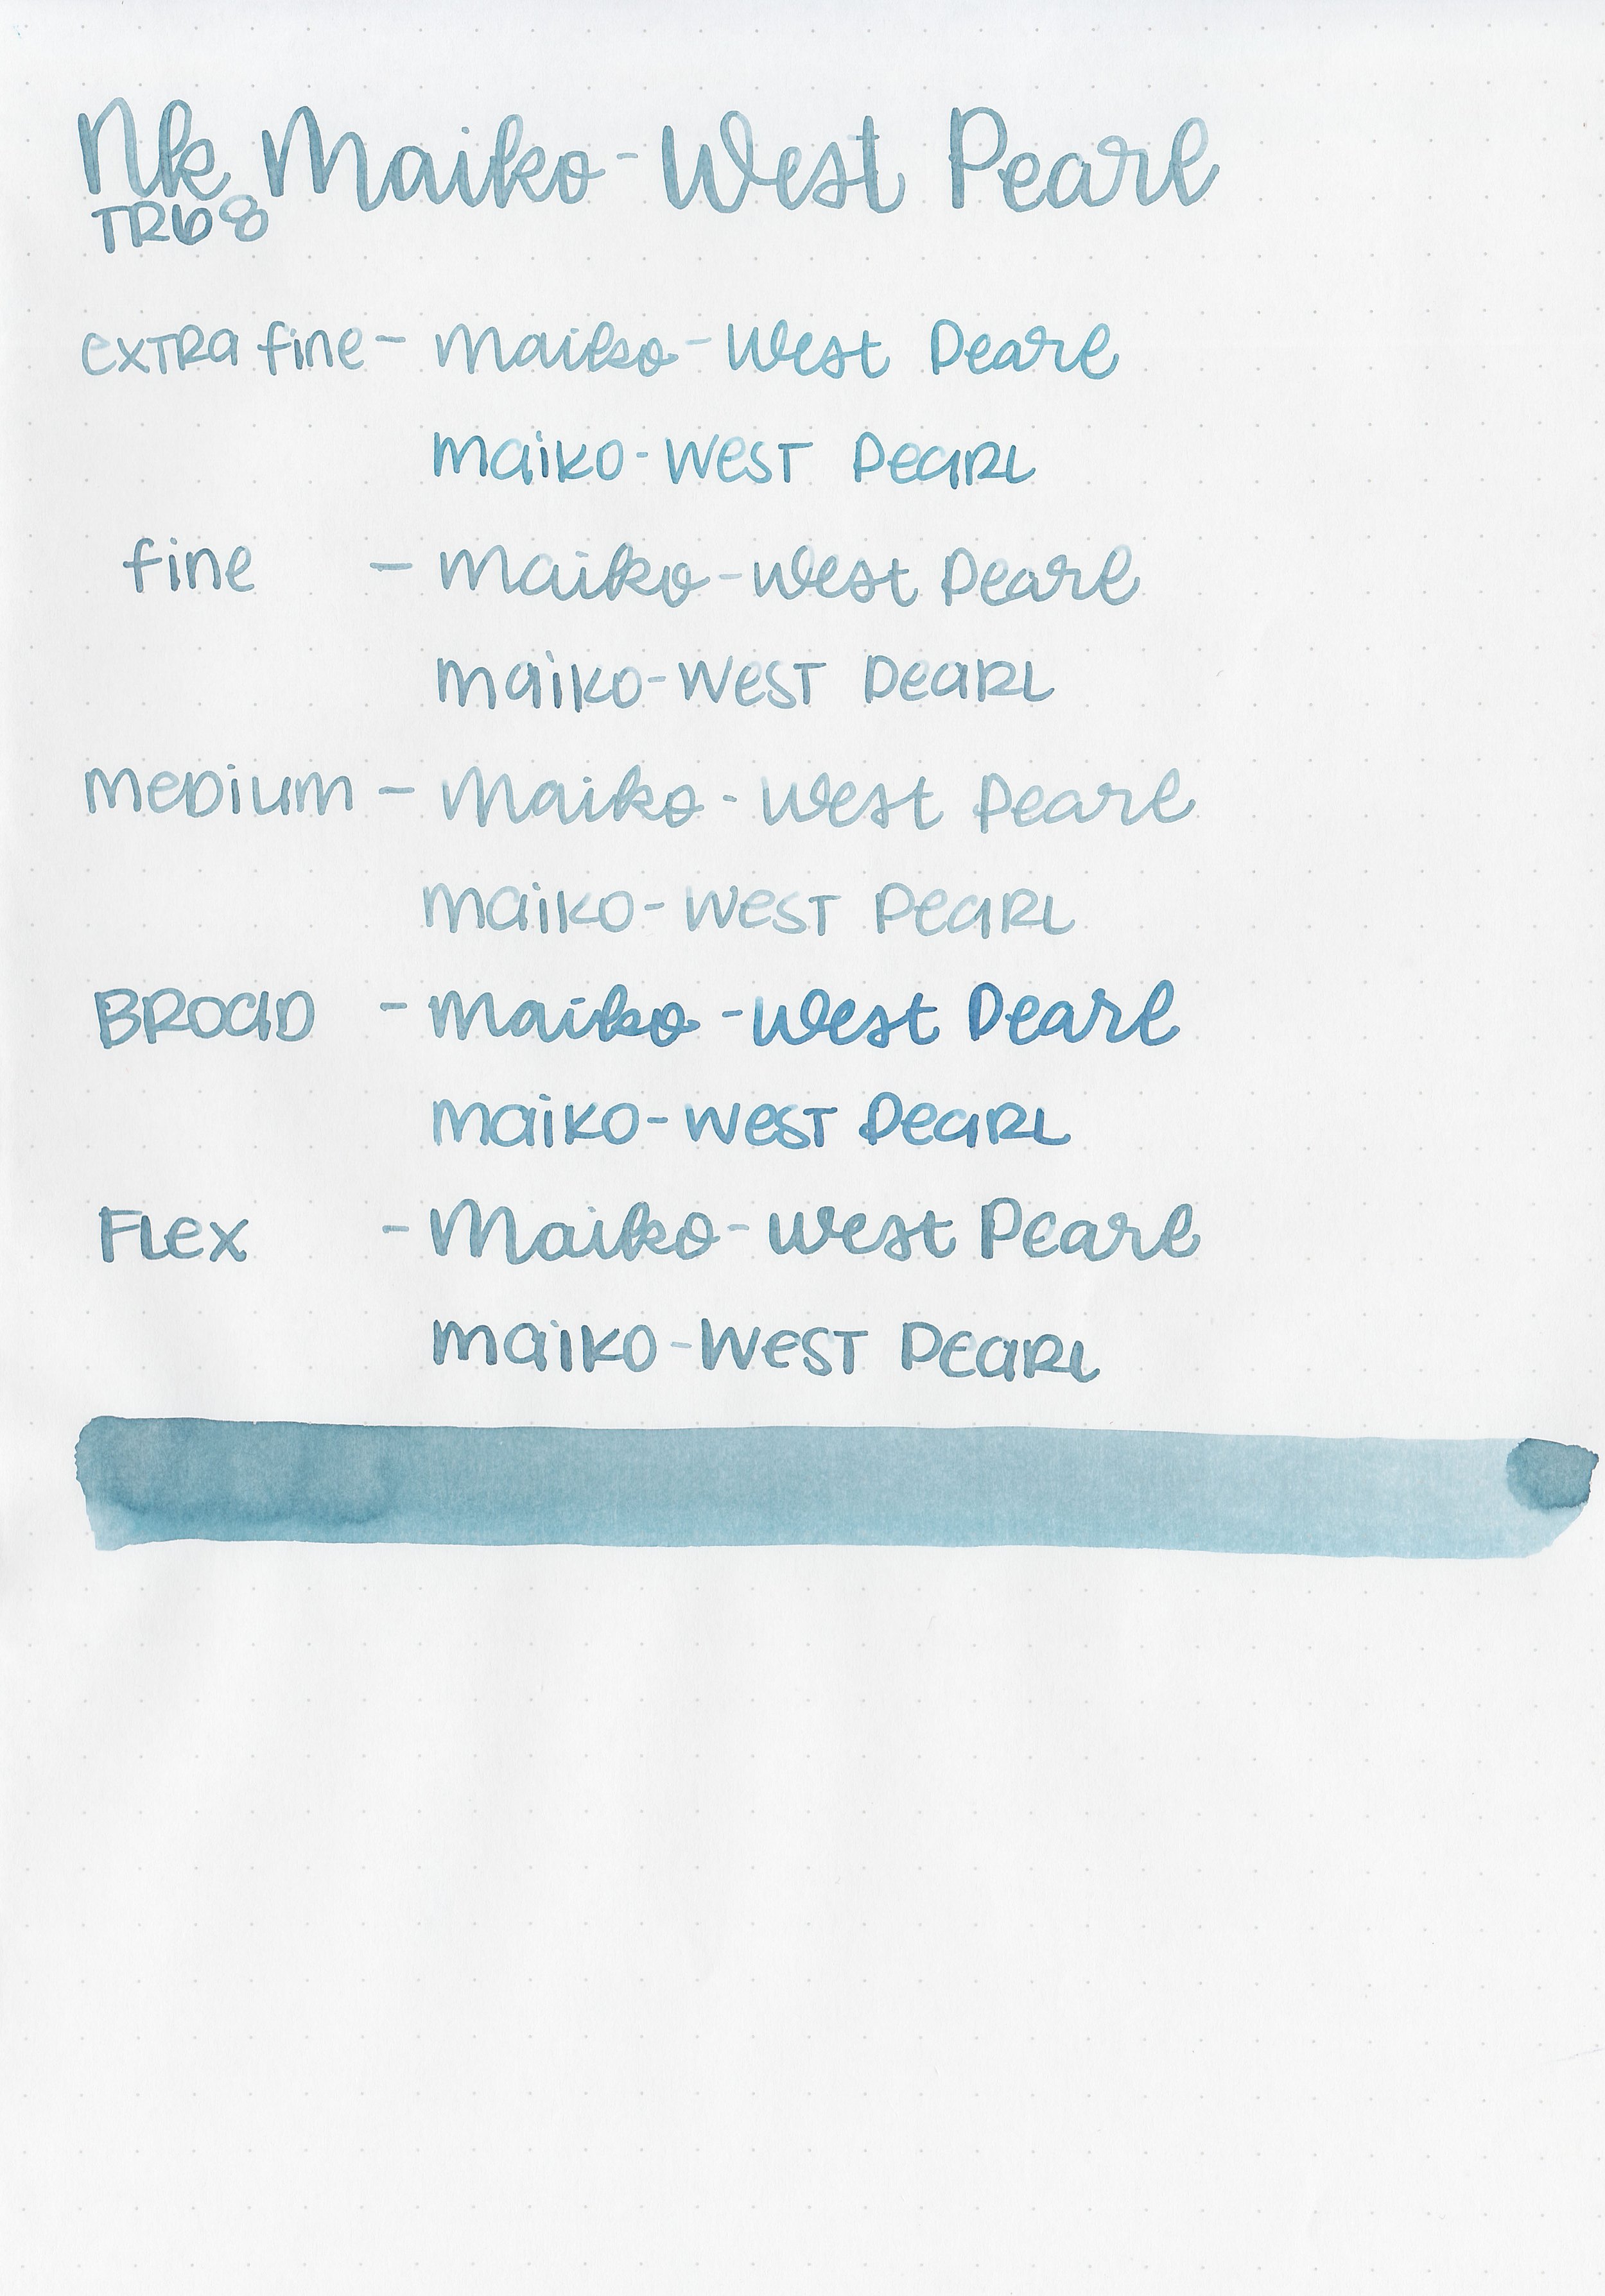 Nk Maiko-West Pearl
TR68
extra fine - Maiko-West Pearl
Maiko-West Pearl
fine - Maiko-West Pearl
Maiko-West Pearl
Medium - Maiko-West Pearl
Maiko-West Pearl
Broad - Maiko-West Pearl
Maiko-West Pearl
Flex - Maiko-West Pearl
Maiko-West Pearl